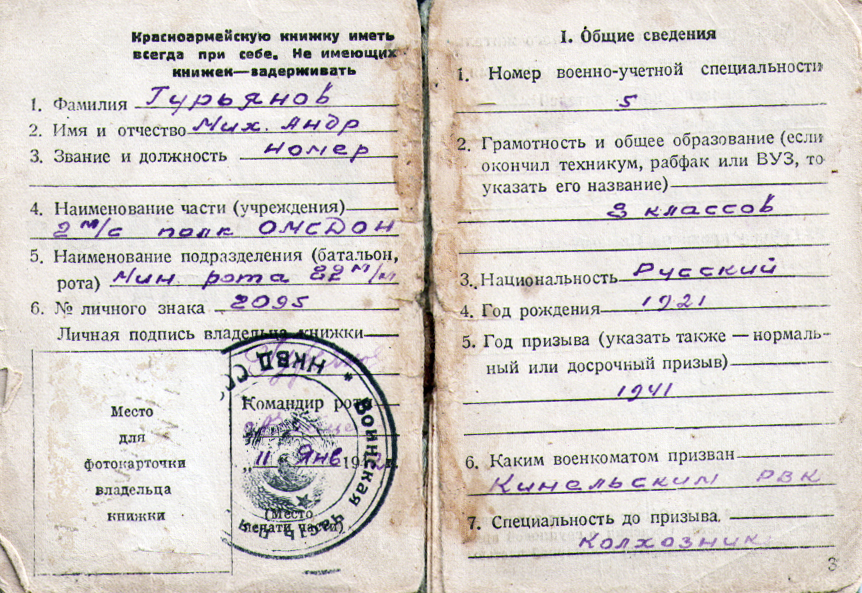 Красноармейскую книжку иметь
всегда при себе. Не имеющих
книжек—задерживать
1. Фамилия Гурьянов
2. Имя и отчество Мих. Андр
3. Звание и должность номер
4. Наименование части (учреждения)
2 м/с полк ОМСДОН
5. Наименование подразделения (батальон,
рота) Мин. рота 82 м/м
6. № личного знака 2095
Личная подпись владельца книжки
Место
для
фотокарточки
владельца
книжки
Командир роты
„11" Янв 1942 г.
(Место
печати части)
НКВД СС
Воинская часть
I. Общие сведения
1. Номер военно-учетной специальности
5
2. Грамотность и общее образование (если
окончил техникум, рабфак или ВУЗ, то
указать его название)
3 классов
3. Национальность Русский
4. Год рождения 1921
5. Год призыва (указать также — нормаль-
ный или досрочный призыв)
1941
6. Каким военкоматом призван
Кинельским РВК
7. Специальность до призыва
Колхозник
3